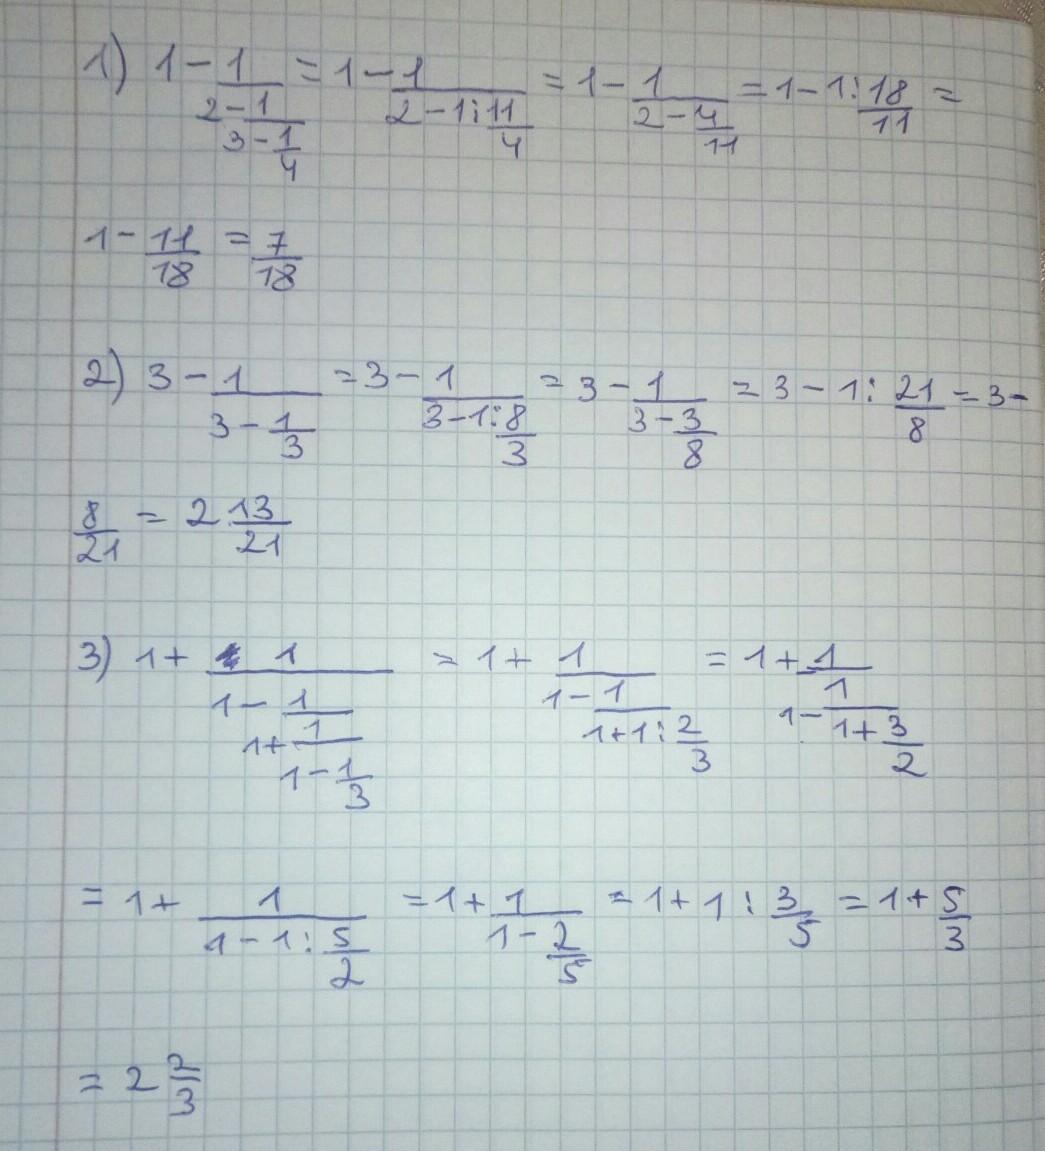 1) 1 - 1/(2 - 1/(3 - 1/4)) = 1 - 1/(2 - 1 : 11/4) = 1 - 1/(2 - 4/11) = 1 - 1 : 18/11 =
1 - 11/18 = 7/18
2) 3 - 1/(3 - 1/3) = 3 - 1/(3 - 1 : 8/3) = 3 - 1/(3 - 3/8) = 3 - 1 : 21/8 = 3 -
8/21 = 2 13/21
3) 1 + 1/(1 - 1/(1 + 1/(1 - 1/3))) = 1 + 1/(1 - 1/(1 + 1 : 2/3)) = 1 + 1/(1 - 1/(1 + 3/2))
= 1 + 1/(1 - 1 : 5/2) = 1 + 1/(1 - 2/5) = 1 + 1 : 3/5 = 1 + 5/3
= 2 2/3